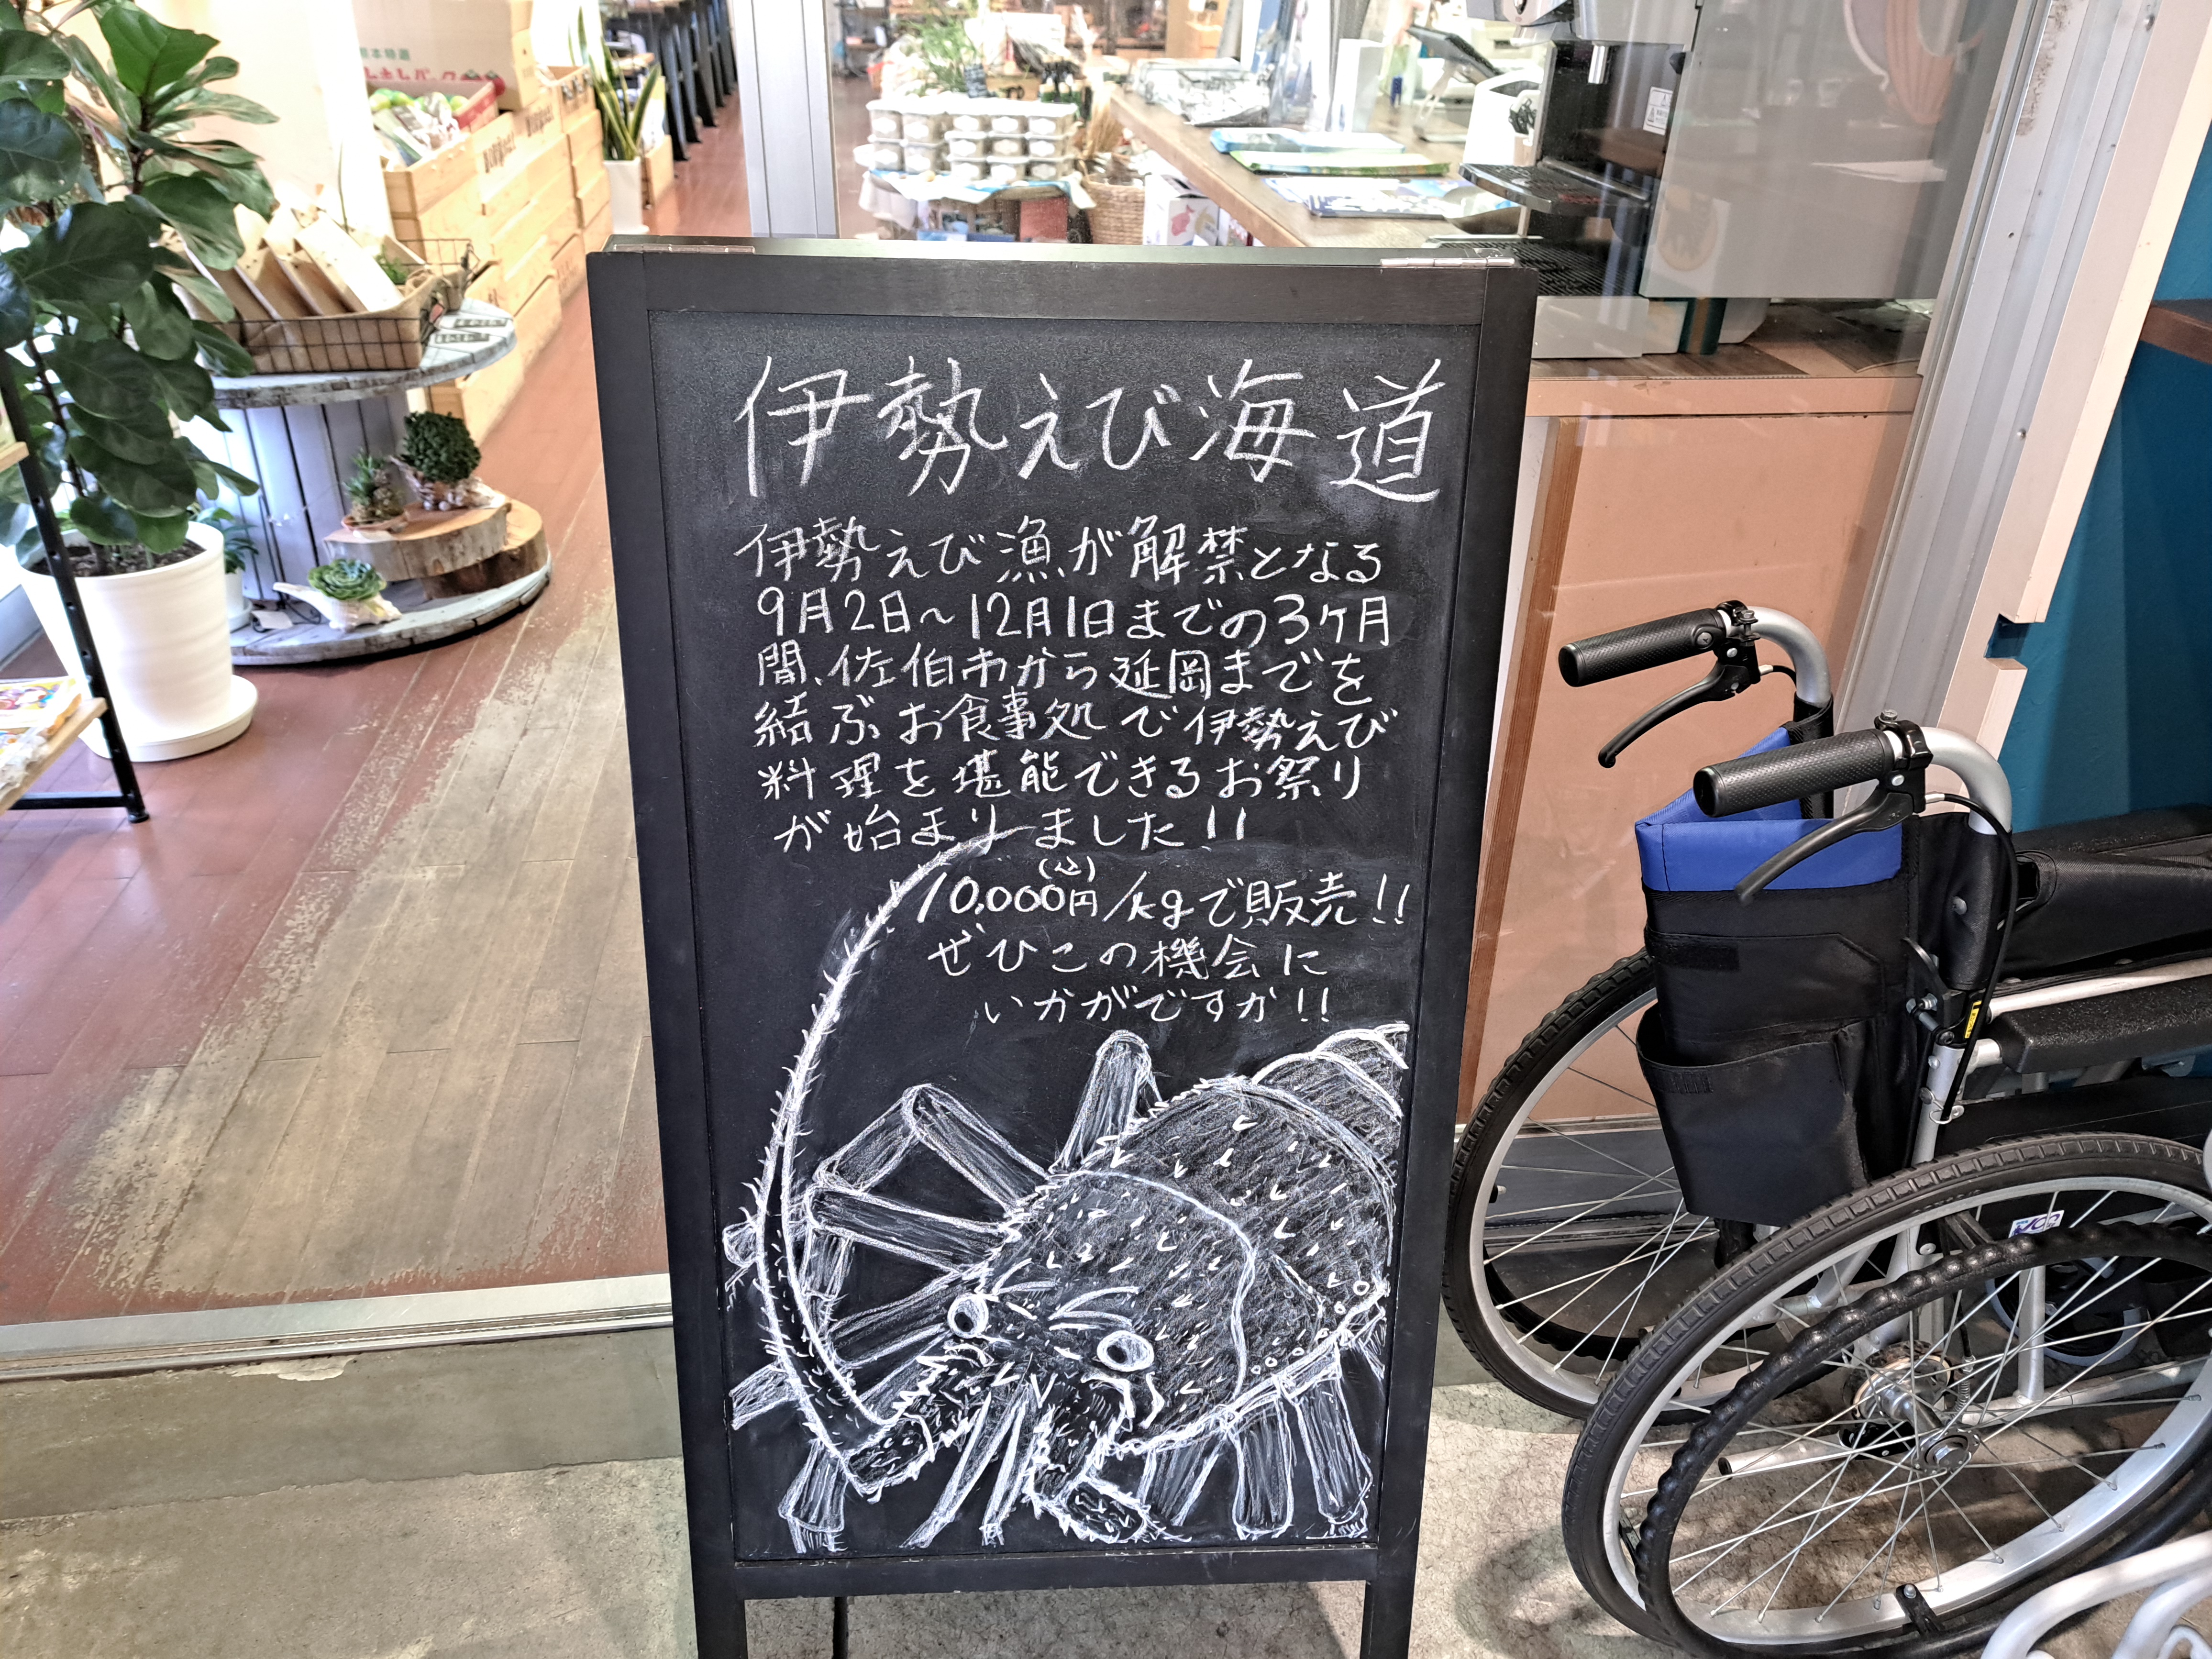 伊勢えび海道
伊勢えび漁が解禁となる
9月2日~12月1日までの3ケ月
間、佐伯市から延岡までを
結ぶお食事処で伊勢えび
料理を堪能できるお祭り
が始まりました!!
(込)
10,000円/kgで販売!!
ぜひこの機会に
いかがですか!!